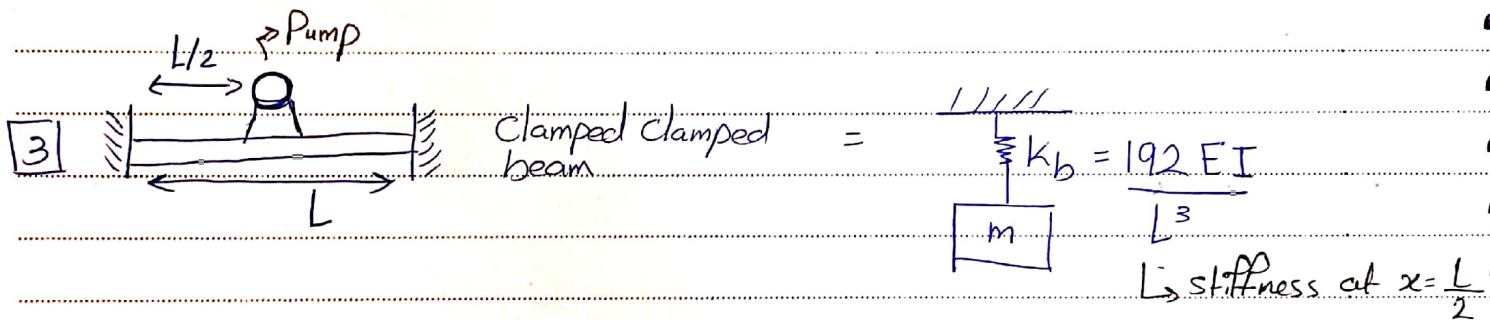 Pump
L/2
3
Clamped Clamped
beam
=
K_b = 192 EI
L³
m
L
↳ stiffness at x = L
2